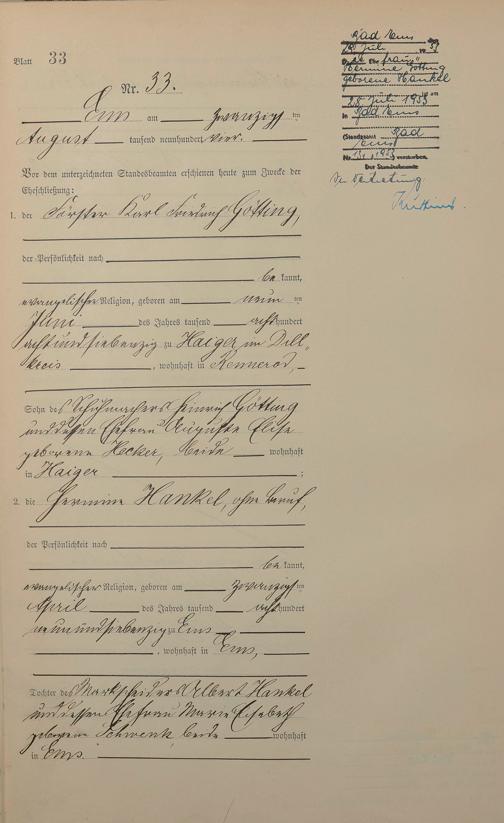 Blatt 33
Nr. 33.
Ems am zwanzigsten
August tausend neunhundert vier.
Vor dem unterzeichneten Standesbeamten erschienen heute zum Zwecke der
Eheschließung:
1. der Förster Karl Friedrich Götting,
der Persönlichkeit nach
bekannt,
evangelischer Religion, geboren am neunten
Juni des Jahres tausend achthundert
achtundsiebenzig zu Haiger im Dill-
kreis, wohnhaft in Rennerod,
Sohn des Schuhmachers Heinrich Götting
und dessen Ehefrau Auguste Elise
geborene Hecker, beide wohnhaft
in Haiger;
2. die Hermine Hankel, ohne Beruf,
der Persönlichkeit nach
bekannt,
evangelischer Religion, geboren am zwanzigsten
April des Jahres tausend achthundert
neunundsiebenzig zu Ems
, wohnhaft in Ems,
Tochter des Markscheiders Albert Hankel
und dessen Ehefrau Marie Elisabeth
geborene Schwenk, beide wohnhaft
in Ems.
Bad Ems, den
Juli 19
Ehefrau
Hermine Götting
geborene Hankel
ist am
28. Juli 1953
in Bad Ems
(Standesamt Bad
Ems
Nr. verstorben.
Der Standesbeamte
In Vertretung